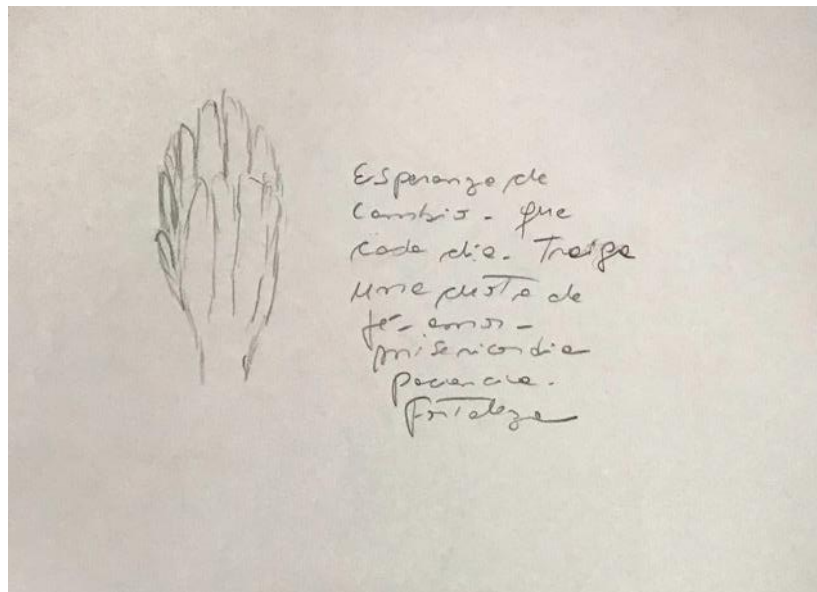 Esperanza de
Cambio - que
cada dia. Traiga
une cuota de
fé - amor -
misericordia
paciencia.
Fortaleza